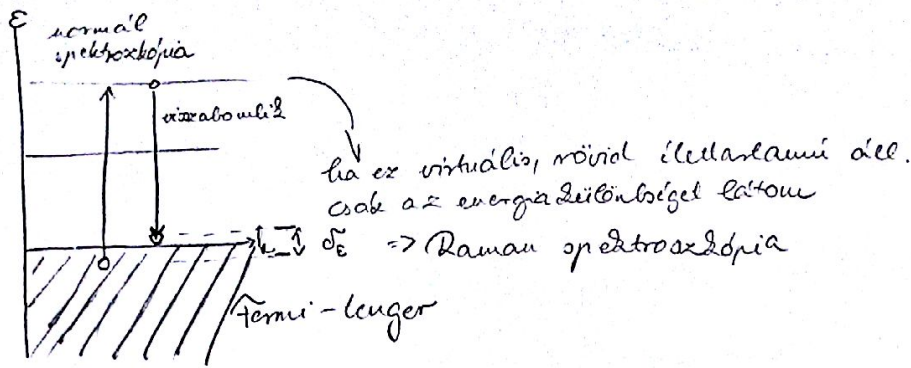 ε
normál
spektroszkópia
visszabomlik
ha ez virtuális, rövid élettartamú áll.
csak az energiakülönbséget látom
δε => Raman spektroszkópia
Fermi-tenger